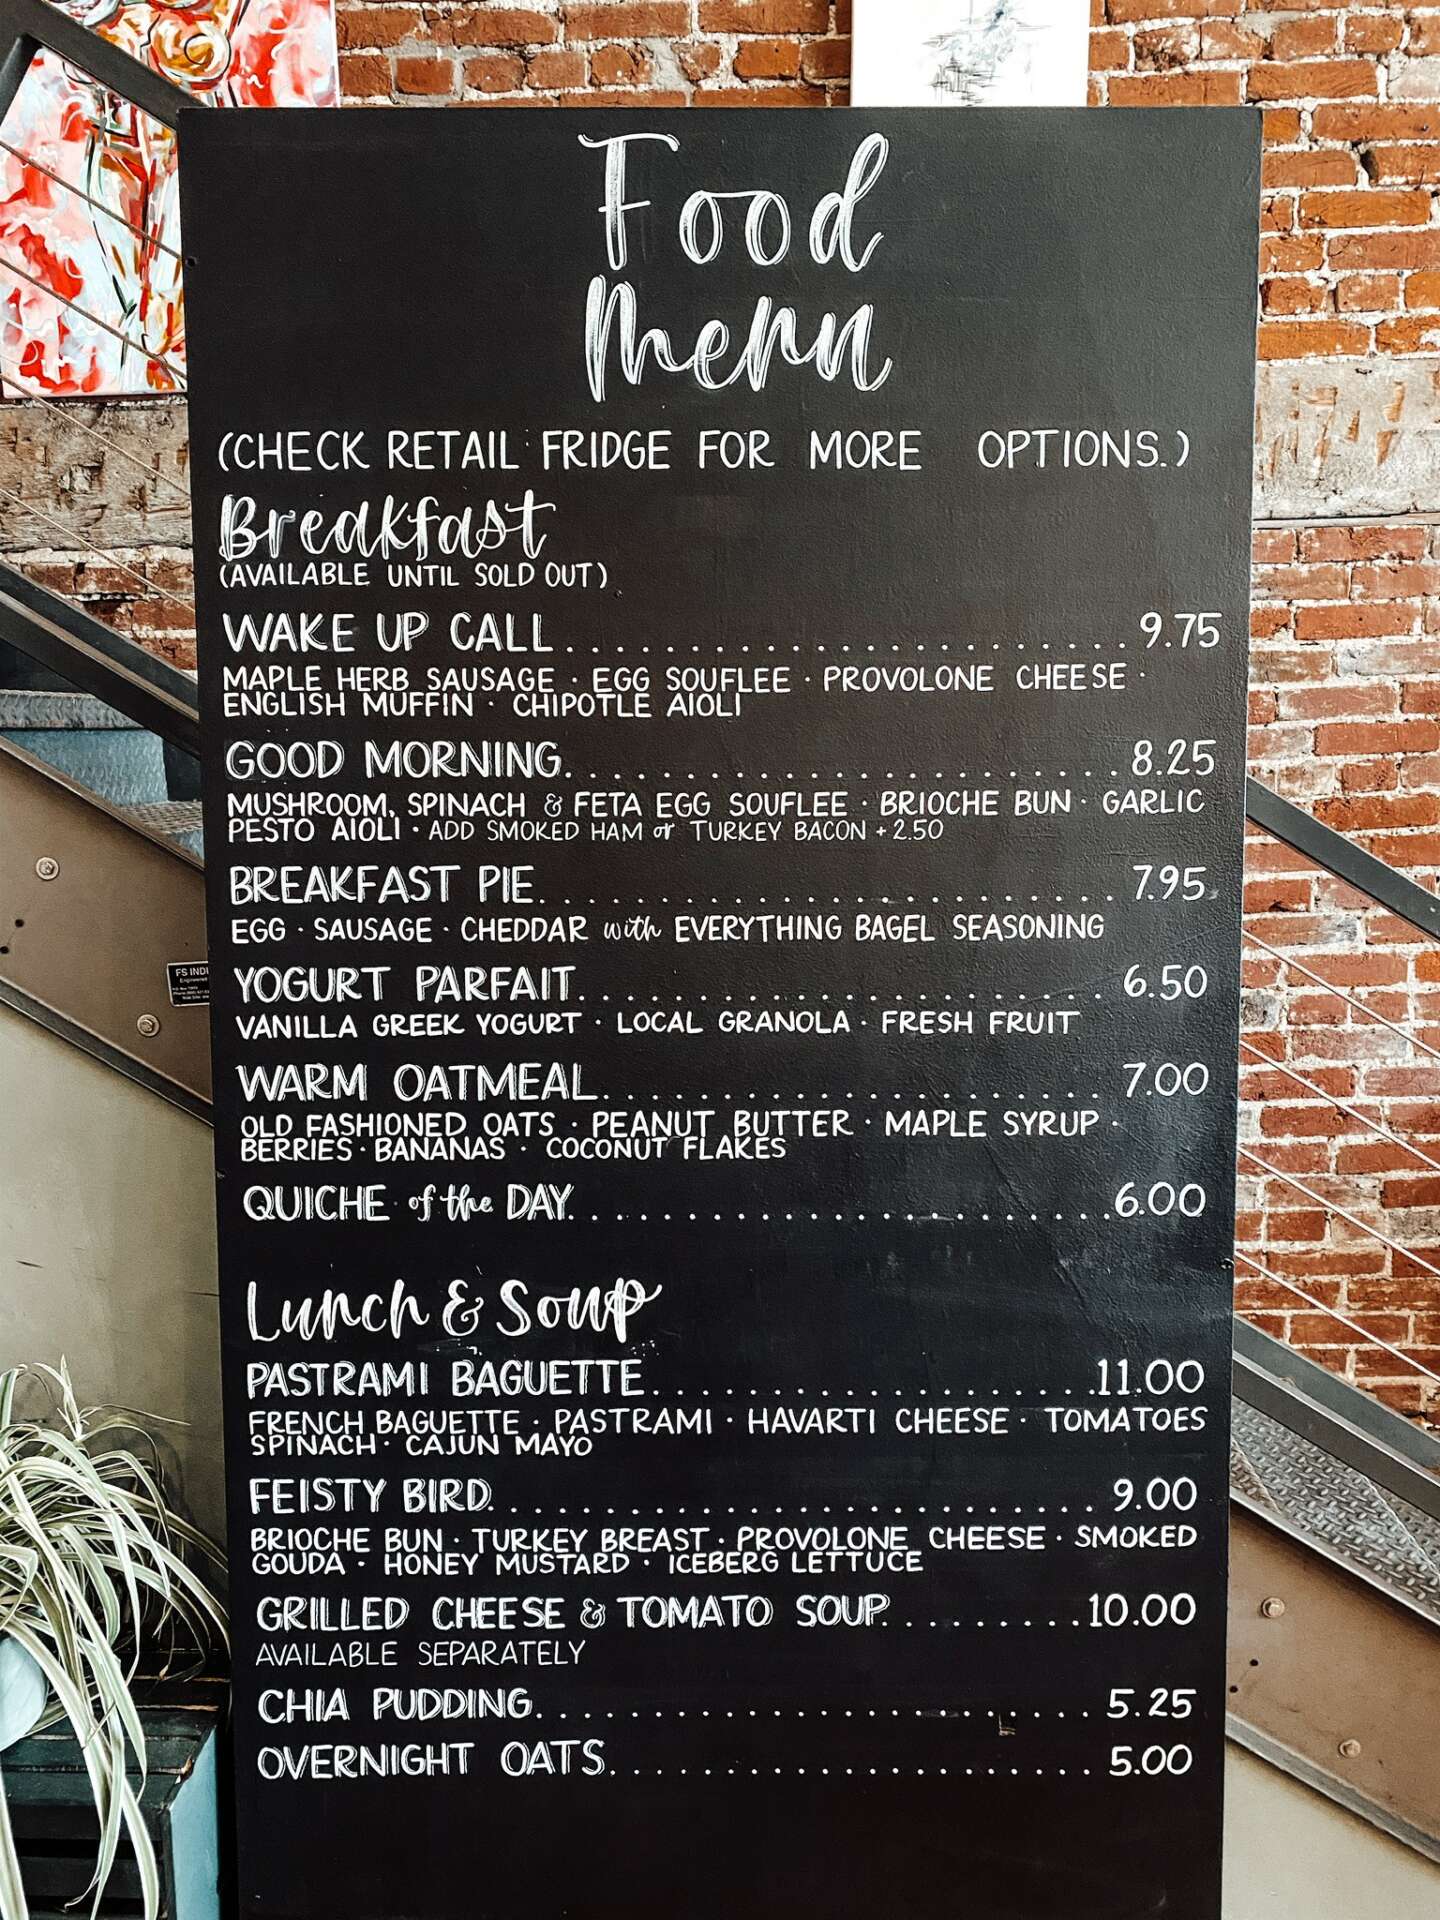 Food
Menu
(CHECK RETAIL FRIDGE FOR MORE OPTIONS.)
Breakfast
(AVAILABLE UNTIL SOLD OUT)
WAKE UP CALL . . . . . . . . . . . . . . . . . . . . . . . . . . 9.75
MAPLE HERB SAUSAGE · EGG SOUFLEE · PROVOLONE CHEESE ·
ENGLISH MUFFIN · CHIPOTLE AIOLI
GOOD MORNING. . . . . . . . . . . . . . . . . . . . . . . . . 8.25
MUSHROOM, SPINACH & FETA EGG SOUFLEE · BRIOCHE BUN · GARLIC
PESTO AIOLI · ADD SMOKED HAM or TURKEY BACON +2.50
BREAKFAST PIE. . . . . . . . . . . . . . . . . . . . . . . . . . 7.95
EGG · SAUSAGE · CHEDDAR with EVERYTHING BAGEL SEASONING
YOGURT PARFAIT. . . . . . . . . . . . . . . . . . . . . . . . 6.50
VANILLA GREEK YOGURT · LOCAL GRANOLA · FRESH FRUIT
WARM OATMEAL. . . . . . . . . . . . . . . . . . . . . . . 7.00
OLD FASHIONED OATS · PEANUT BUTTER · MAPLE SYRUP ·
BERRIES · BANANAS · COCONUT FLAKES
QUICHE of the DAY. . . . . . . . . . . . . . . . . . . . . . . . .6.00
Lunch & Soup
PASTRAMI BAGUETTE. . . . . . . . . . . . . . . . . . . . .11.00
FRENCH BAGUETTE · PASTRAMI · HAVARTI CHEESE · TOMATOES
SPINACH · CAJUN MAYO
FEISTY BIRD. . . . . . . . . . . . . . . . . . . . . . . . . . . . 9.00
BRIOCHE BUN · TURKEY BREAST · PROVOLONE CHEESE · SMOKED
GOUDA · HONEY MUSTARD · ICEBERG LETTUCE
GRILLED CHEESE & TOMATO SOUP. . . . . . . . . .10.00
AVAILABLE SEPARATELY
CHIA PUDDING. . . . . . . . . . . . . . . . . . . . . . . . . 5.25
OVERNIGHT OATS. . . . . . . . . . . . . . . . . . . . . . 5.00
FS INDU
Engineered